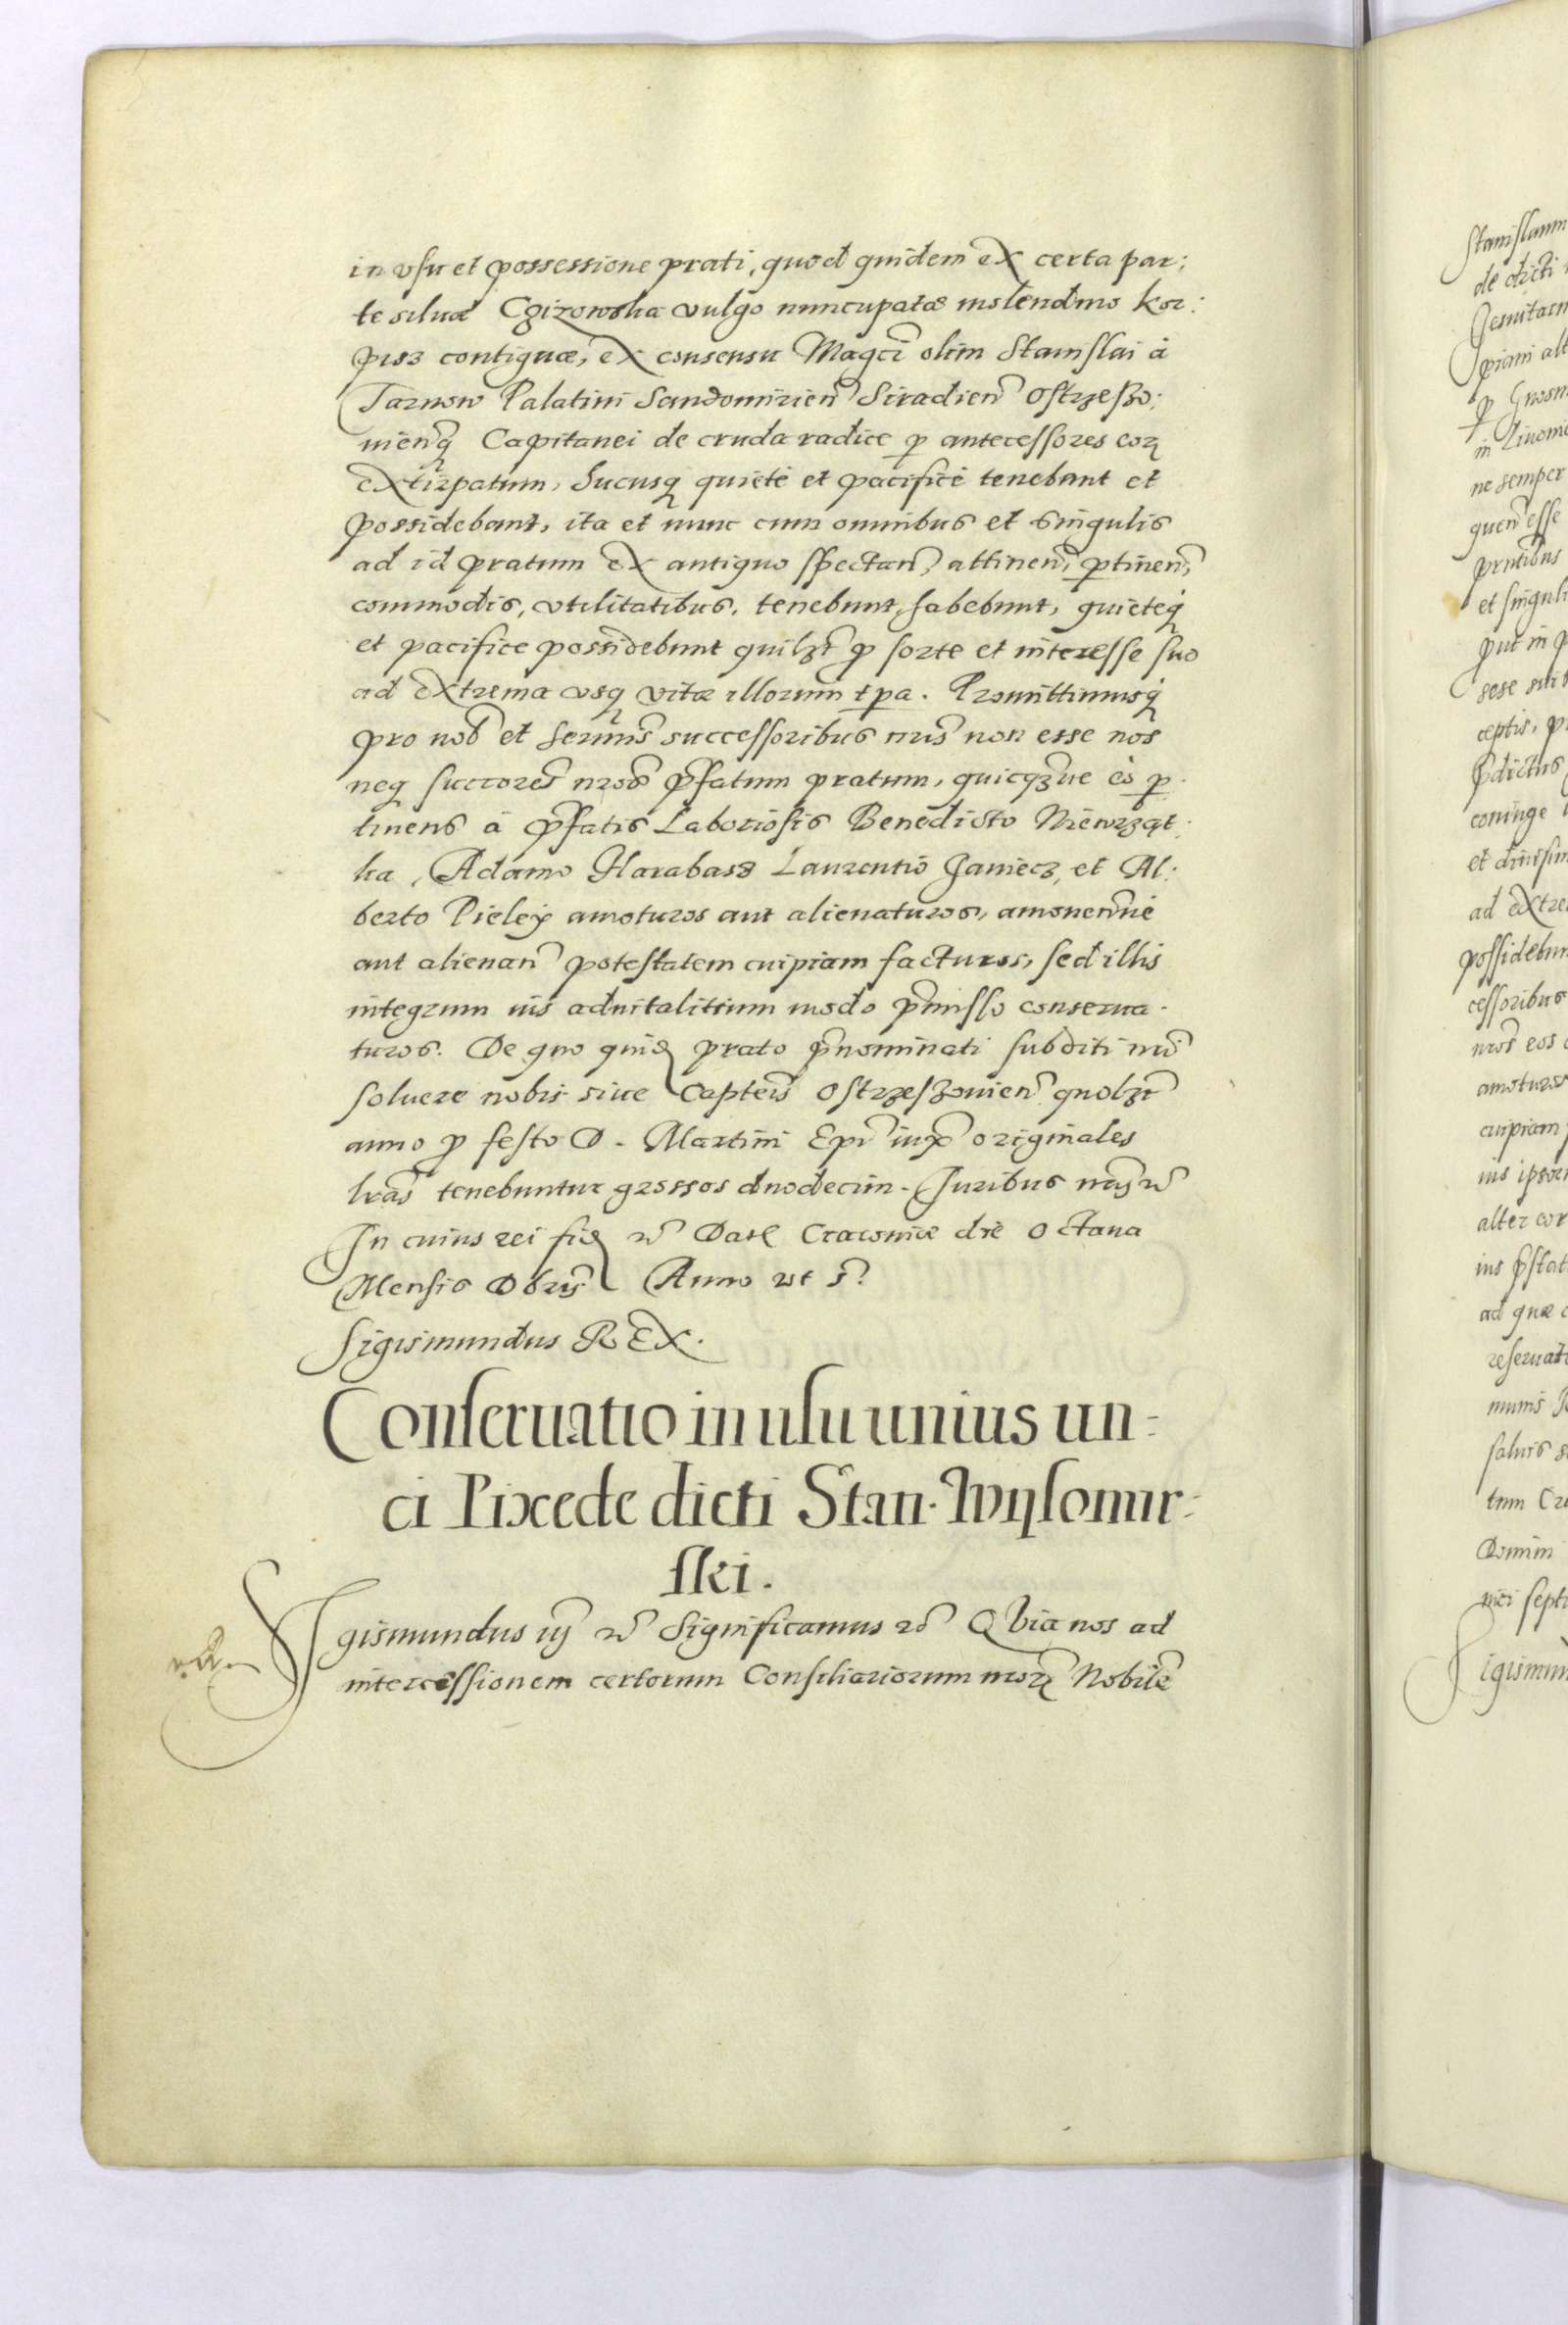 in vsu et possessione prati, quod quidem ex certa par:
te siluæ Cgizowska vulgo nuncupatæ molendino Kor:
pisz contiguæ, ex consensu Magci olim Stanislai à
Tarnow Palatini Sandomirien Siradien Ostrzeszo:
uienq Capitanei de cruda radice p antecessores eor
extirpatum, hucusq quietè et pacificè tenebant et
possidebant, ita et nunc cum omnibus et singulis
ad id pratum ex antiquo spectan, attinen, ptinen,
commodis, vtilitatibus, tenebunt, habebunt, quieteq
et pacifice possidebunt quilzt p sorte et interesse suo
ad extrema vsq vitæ illorum tpa. Promittimusq
pro nob et Sermis successoribus nris non esse nos
neq succores nros pfatum pratum, quicqzue eò p
tinens à pfatis Laboriosis Benedicto Niewrzęt:
ka, Adamo Harabasz Laurentio Janiecz, et Al:
berto Pieley amoturos aut alienaturos, amouenuè
aut alienan potestatem cuipiam facturos, sed illis
integrum ius aduitalitium modo pmisso conserua-
turos. De quo quid prato pnominati subditi nri
soluere nobis siue Capteis Ostrzeszouien quolzt
anno p festo D. Martini Epi iux originales
lras tenebuntur grossos duodecim. Juribus nris
In cuius rei fid Dat Cracouiæ die Octaua
Mensis Xbris Anno vt s.
Sigismundus REX.
Conseruatio in usu unius un-
ci Pixede dicti Stan. Wysomir-
ski.
Sigismundus iij Significamus QVia nos ad
intercessionem certorum Consiliariorum nror Nobile
Stanislaum
de dicti
p
in
ne semper
quen esse
et singuli
put in
ceptis, p
pdictus
coniuge
ad extre
possidebun
cessoribus
nros eos
amoturos
cuipiam
ius
alter
ius
ad quæ
reseruat
saluis
tum
Domini
mei
Sigismun